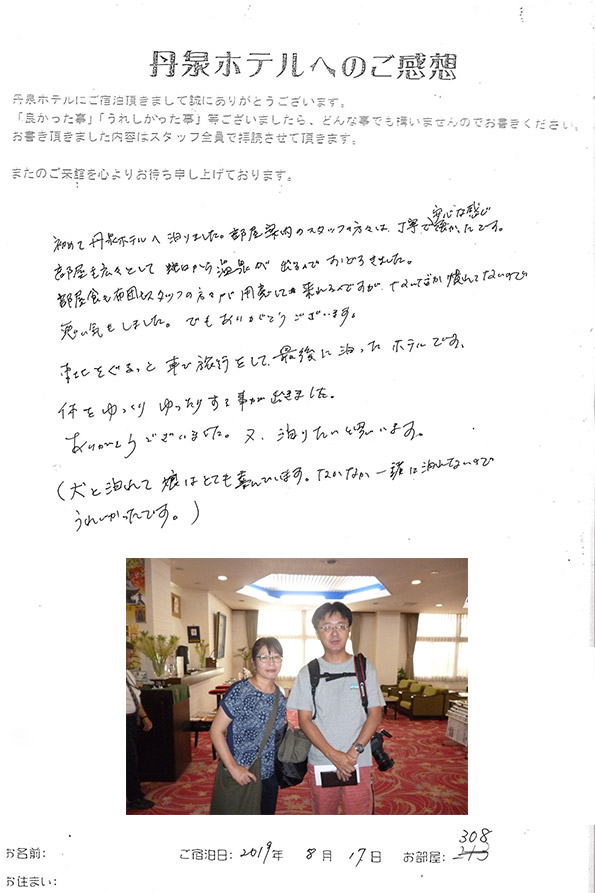 丹泉ホテルへのご感想
丹泉ホテルにご宿泊頂きまして誠にありがとうございます。
「良かった事」「うれしかった事」等ございましたら、どんな事でも構いませんのでお書きください。
お書き頂きました内容はスタッフ全員で拝読させて頂きます。
またのご来館を心よりお待ち申し上げております。
安心な感じ
初めて丹泉ホテルへ泊りました。部屋案内のスタッフの方々は、丁寧で暖かったです。
部屋も広々として蛇口から温泉が出るのでおどろきました。
部屋食も布団もスタッフの方々が用意しに来れるんですが、なかなか慣れてないので
悪い気もしました。でもありがとうございます。
東北をぐるっと車で旅行をして、最後に泊ったホテルです。
体をゆっくりゆったりする事が出きました。
ありがとうございました。又、泊りたいと思います。
(犬と泊れて娘はとても喜んでいます。なかなか一緒に泊れないので
うれしかったです。)
お名前: ご宿泊日: 2019年 8月 17日 お部屋: 308
お住まい: